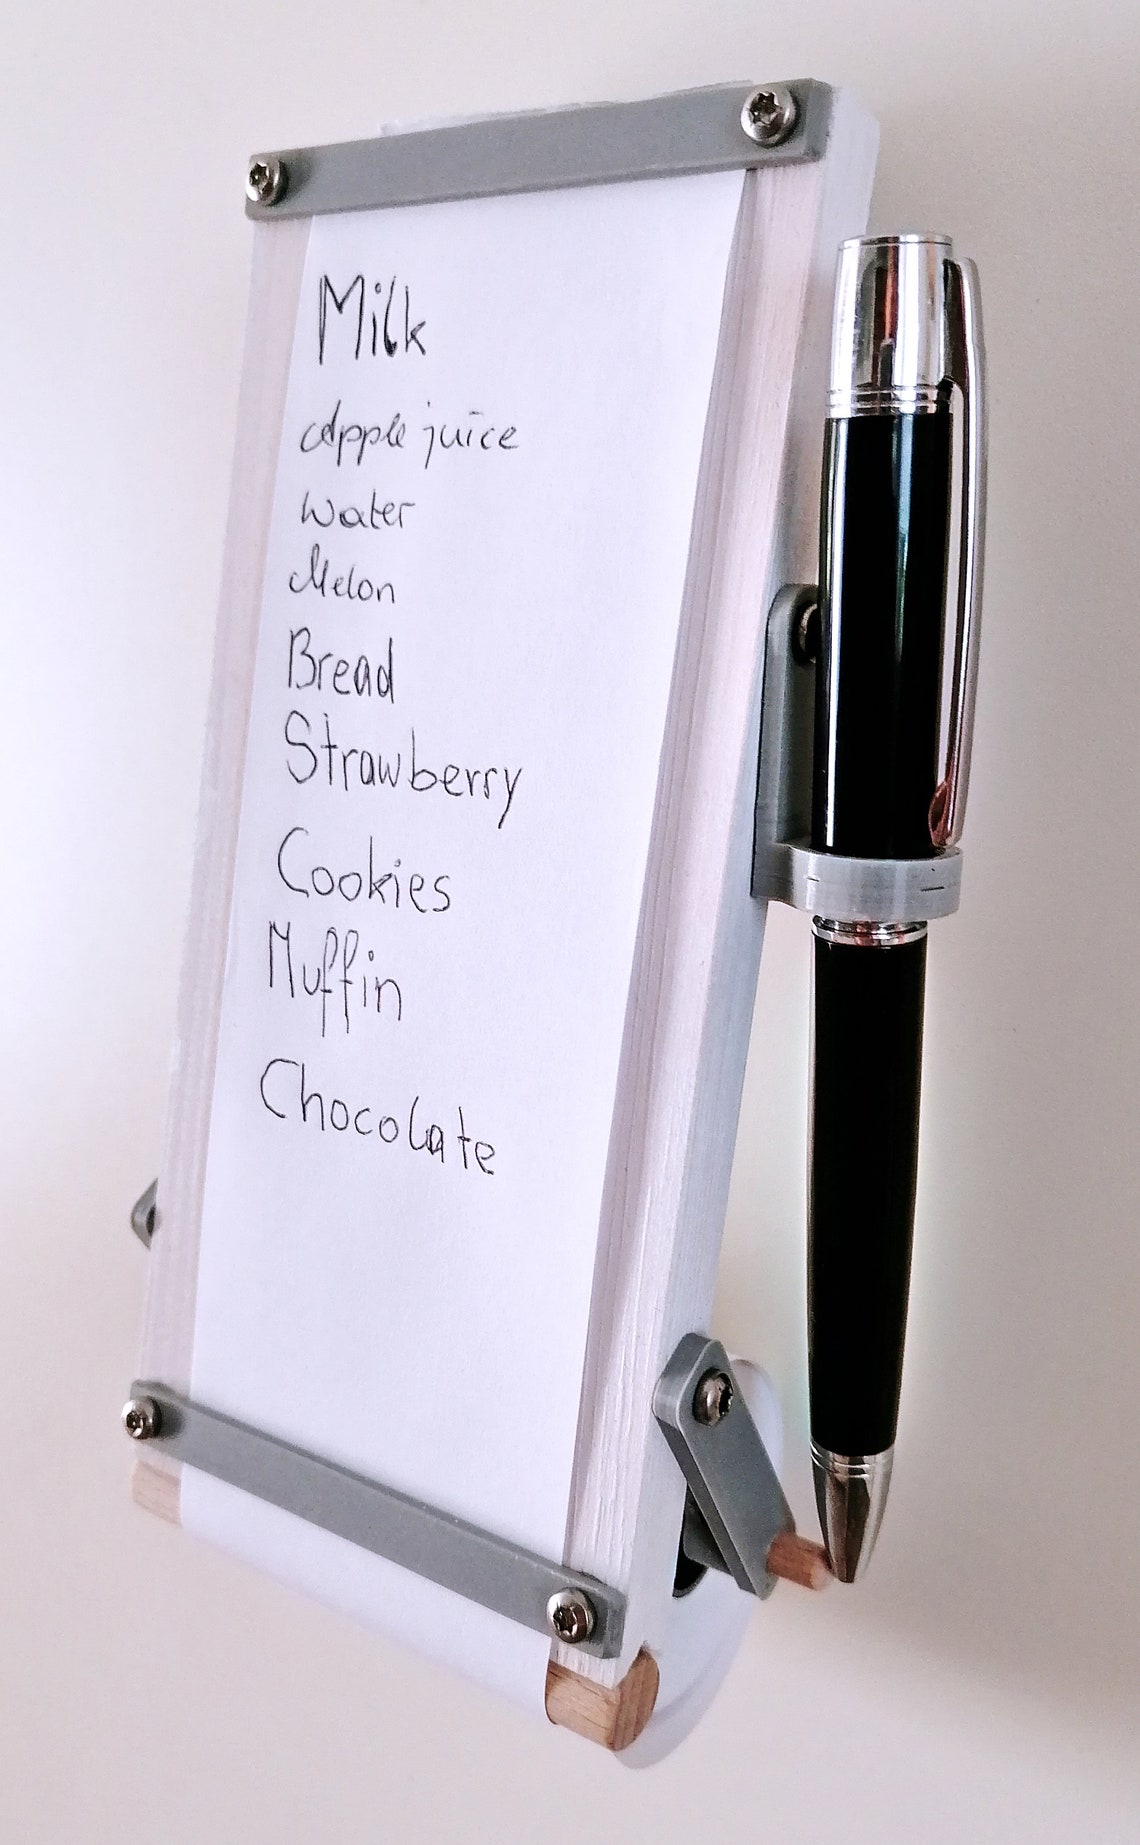 Milk
Apple juice
Water
Melon
Bread
Strawberry
Cookies
Muffin
Chocolate